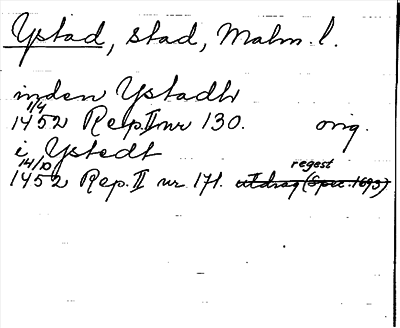 Ystad, stad, Malm. l.
inden Ystadh
1/4 1452 Rep. II nr 130. orig.
i Ystedt
14/10 1452 Rep. II nr 171. utdrag (Spec. 1693) regest